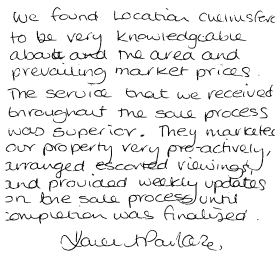 We found Location
to be very knowledgeable
about and the area and
prevailing market prices.
The service that we received
throughout the sale process
was superior. They marketed
our property very pro-actively,
arranged escorted viewings,
and provided weekly updates
on the sale process until
completion was finalised.